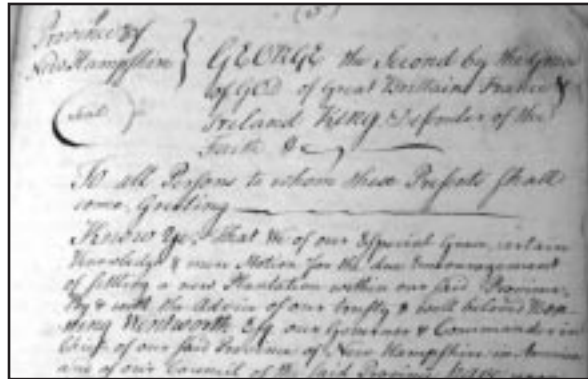 (5)
Province of
New Hampshire
Seal
GEORGE the Second by the Grace
of GOD of Great Brittain France &
Ireland King Defender of the
Faith &c
To all Persons to whom these Presents shall
come, Greeting
Know Ye, that We of our Especial Grace, certain
Knowledge & meer Motion for the due Encouragement
of settling a new Plantation within our said Province,
By & with the Advice of our trusty & well beloved Ben
ning Wentworth Esq our Governor & Commander in
Chief of our said Province of New Hampshire in America
and of our Council of the said Province Have upon